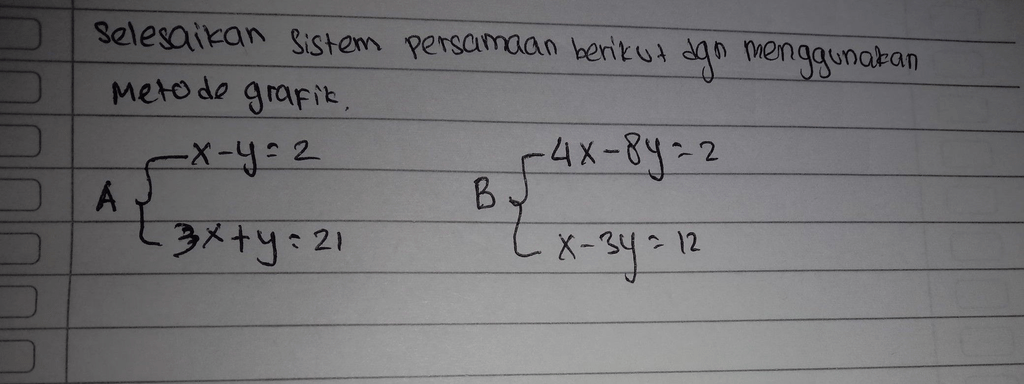 Selesaikan Sistem persamaan berikut dgn menggunakan
Metode grafik.
A { x-y=2
3x+y=21
B { 4x-8y=2
x-3y=12